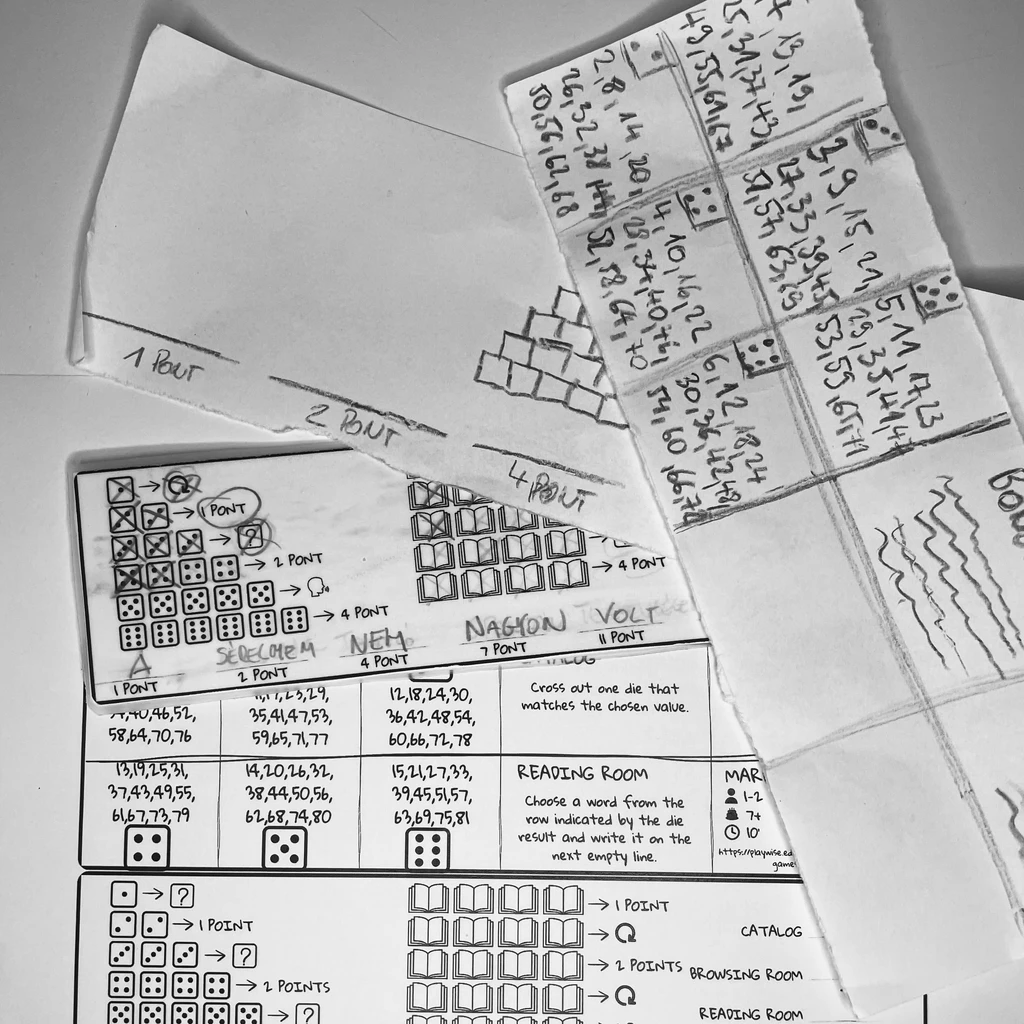 1 PONT
2 PONT
4 PONT
13, 19,
25, 31, 37, 43,
49, 55, 61, 67
2, 8, 14, 20,
26, 32, 38, 44,
50, 56, 62, 68
3, 9, 15, 21,
27, 33, 39, 45,
51, 57, 63, 69
4, 10, 16, 22
28, 34, 40, 46,
52, 58, 64, 70
5, 11, 17, 23
29, 35, 41, 47
53, 59, 65, 71
6, 12, 18, 24
30, 36, 42, 48,
54, 60, 66, 72
1 PONT
?
2 PONT
4 PONT
4 PONT
A NEM NAGYON VOLT
1 PONT 2 PONT 4 PONT 7 PONT 11 PONT
CATALOG
Cross out one die that
matches the chosen value.
34,40,46,52,
58,64,70,76
11,17,23,29,
35,41,47,53,
59,65,71,77
12,18,24,30,
36,42,48,54,
60,66,72,78
13,19,25,31,
37,43,49,55,
61,67,73,79
14,20,26,32,
38,44,50,56,
62,68,74,80
15,21,27,33,
39,45,51,57,
63,69,75,81
READING ROOM
Choose a word from the
row indicated by the die
result and write it on the
next empty line.
1-2
7+
10'
https://playwise.ed
game
?
1 POINT
?
2 POINTS
?
1 POINT
2 POINTS
CATALOG
BROWSING ROOM
READING ROOM